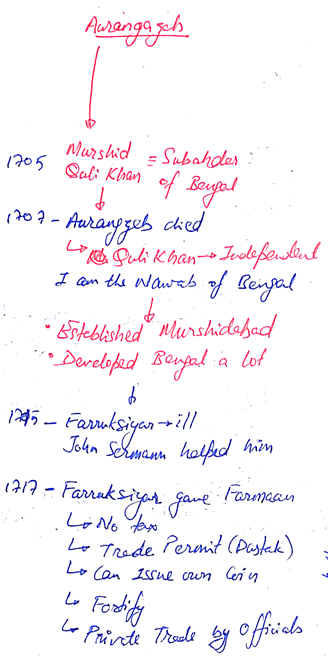 Aurangazeb
1705 Murshid Quli Khan = Subahdar of Bengal
1707 - Aurangzeb died
↳ Quli Khan → Independent
I am the Nawab of Bengal
• Established Murshidabad
• Developed Bengal a lot
1715 - Farruksiyar → ill
John Sermann helped him
1717 - Farruksiyar gave Farmaan
↳ No tax
↳ Trade Permit (Dastak)
↳ Can Issue own Coin
↳ Fortify
↳ Private Trade by Officials